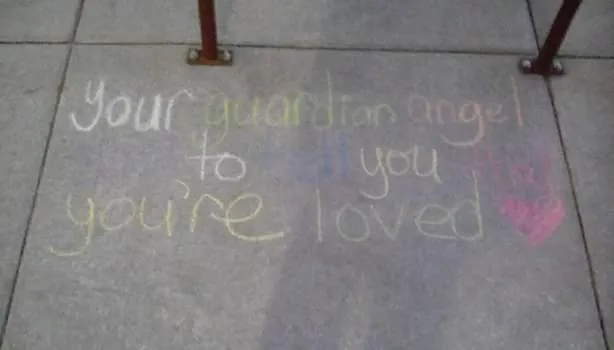 your guardian angel
to tell you that
you're loved